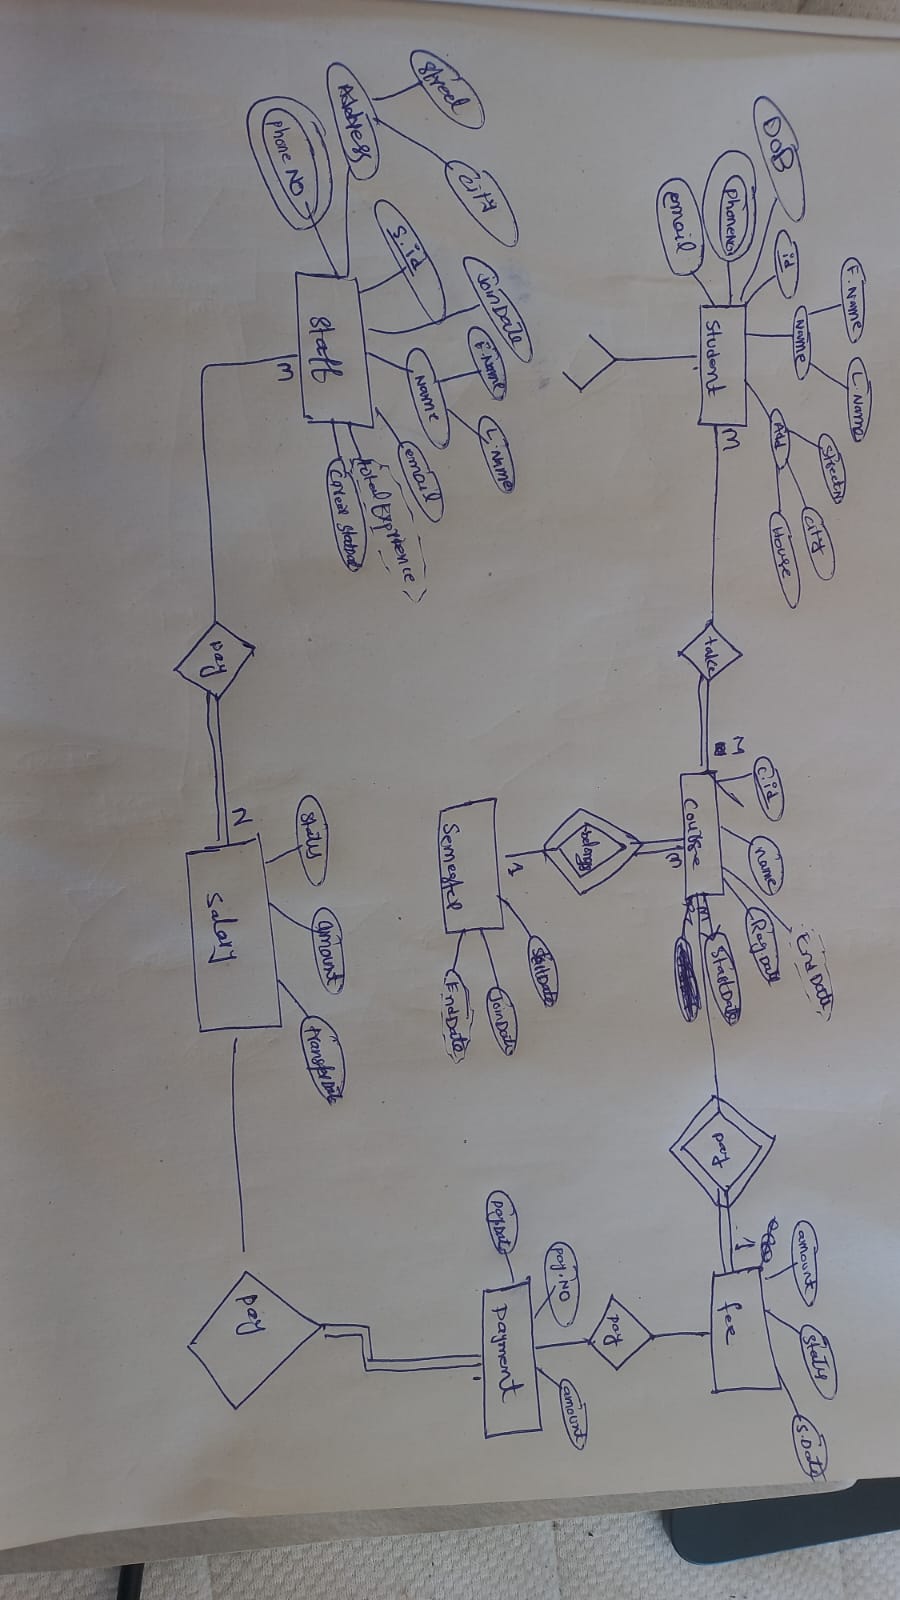 DoB
id
phoneNo
email
Student
Name
F.Name
L.Name
Add
StreetN
City
House
M
take
M
C.id
name
RegDate
EndDate
StartDate
Course
M
M
belongs
1
Semester
StartDate
JoinDate
EndDate
pay
1
fee
amount
Status
S.Date
pay
Payment
payDate
pay.NO
amount
Street
City
Address
phone NO
S.id
JoinDate
Name
F.Name
L.Name
email
total Expirence
Staff
M
pay
N
Salary
Status
amount
transferDate
pay